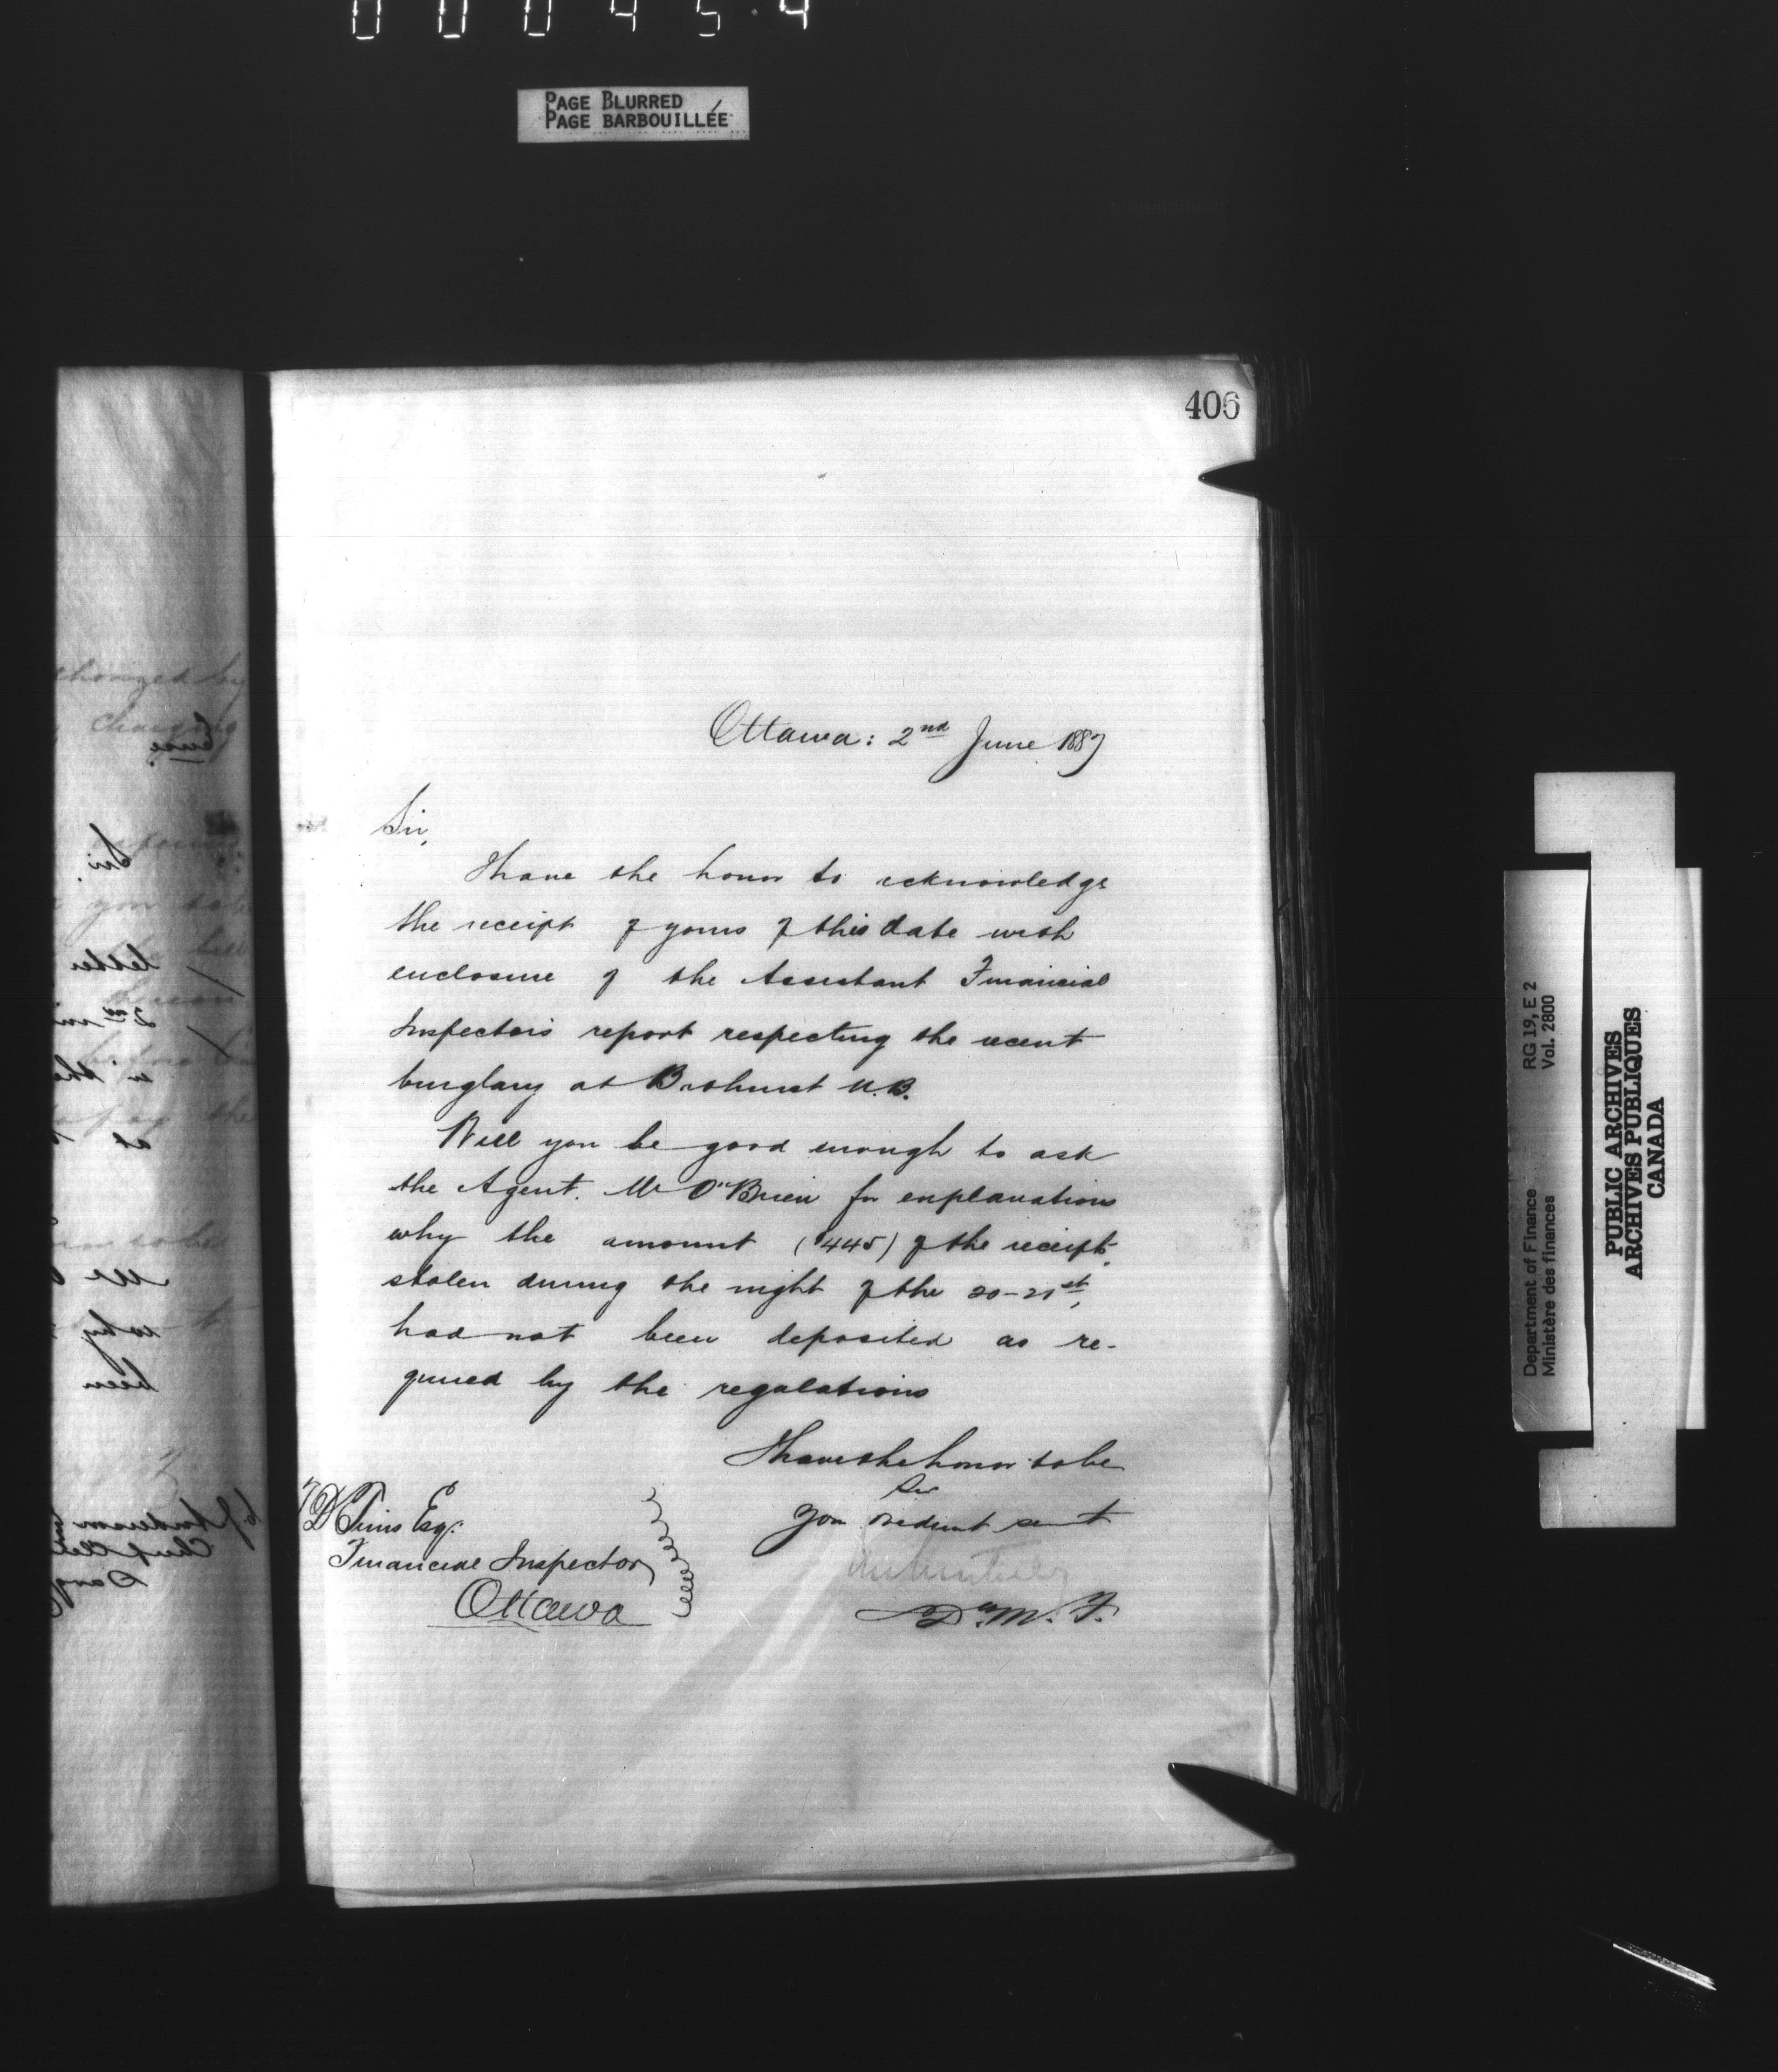 000454
PAGE BLURRED
PAGE BARBOUILLÉE
406
Ottawa: 2nd June 1887
Sir,
I have the honor to acknowledge
the receipt of yours of this date with
enclosure of the Assistant Financial
Inspectors report respecting the recent
burglary at Bathurst N.B.
Will you be good enough to ask
the Agent. Mr O'Brien for explanations
why the amount ($445) of the receipts
stolen during the night of the 20-21st,
had not been deposited as re-
quired by the regulations
I have the honor to be
Sir
Your obedient servt
D.M.F.
T D Tims Esq.
Financial Inspector
Ottawa
RG 19, E 2
Vol. 2800
Department of Finance
Ministère des finances
PUBLIC ARCHIVES
ARCHIVES PUBLIQUES
CANADA